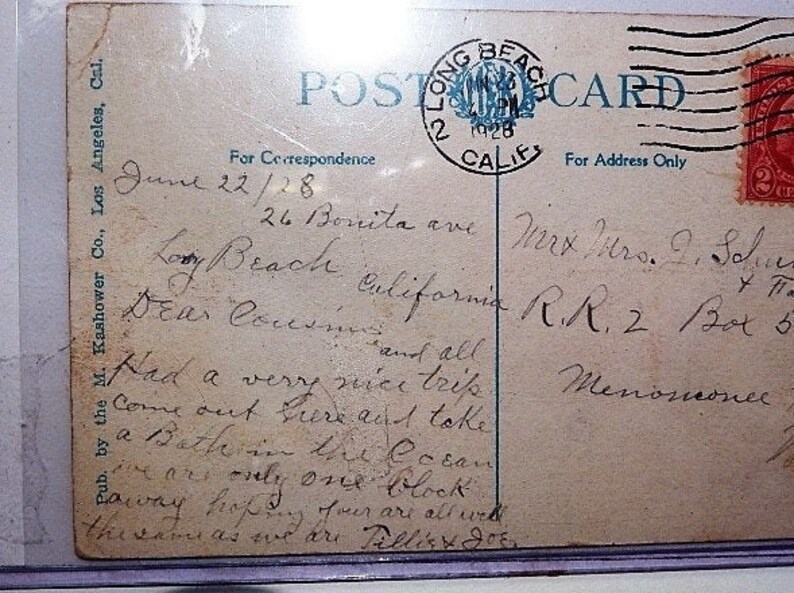 POST CARD
2 LONG BEACH
JUN 23
PM
1928
CALIF.
For Correspondence
For Address Only
2
Pub. by the M. Kashower Co., Los Angeles, Cal.
June 22/28
26 Bonita ave
Long Beach
California
Dear Cousin
and all
Had a verry nice trip
come out here and take
a Bath in the Ocean
we are only one block
away hoping your are all well
the same as we are Tillie & Joe.
Mr & Mrs. J.
&
R.R. 2 Box 5
Menomonee